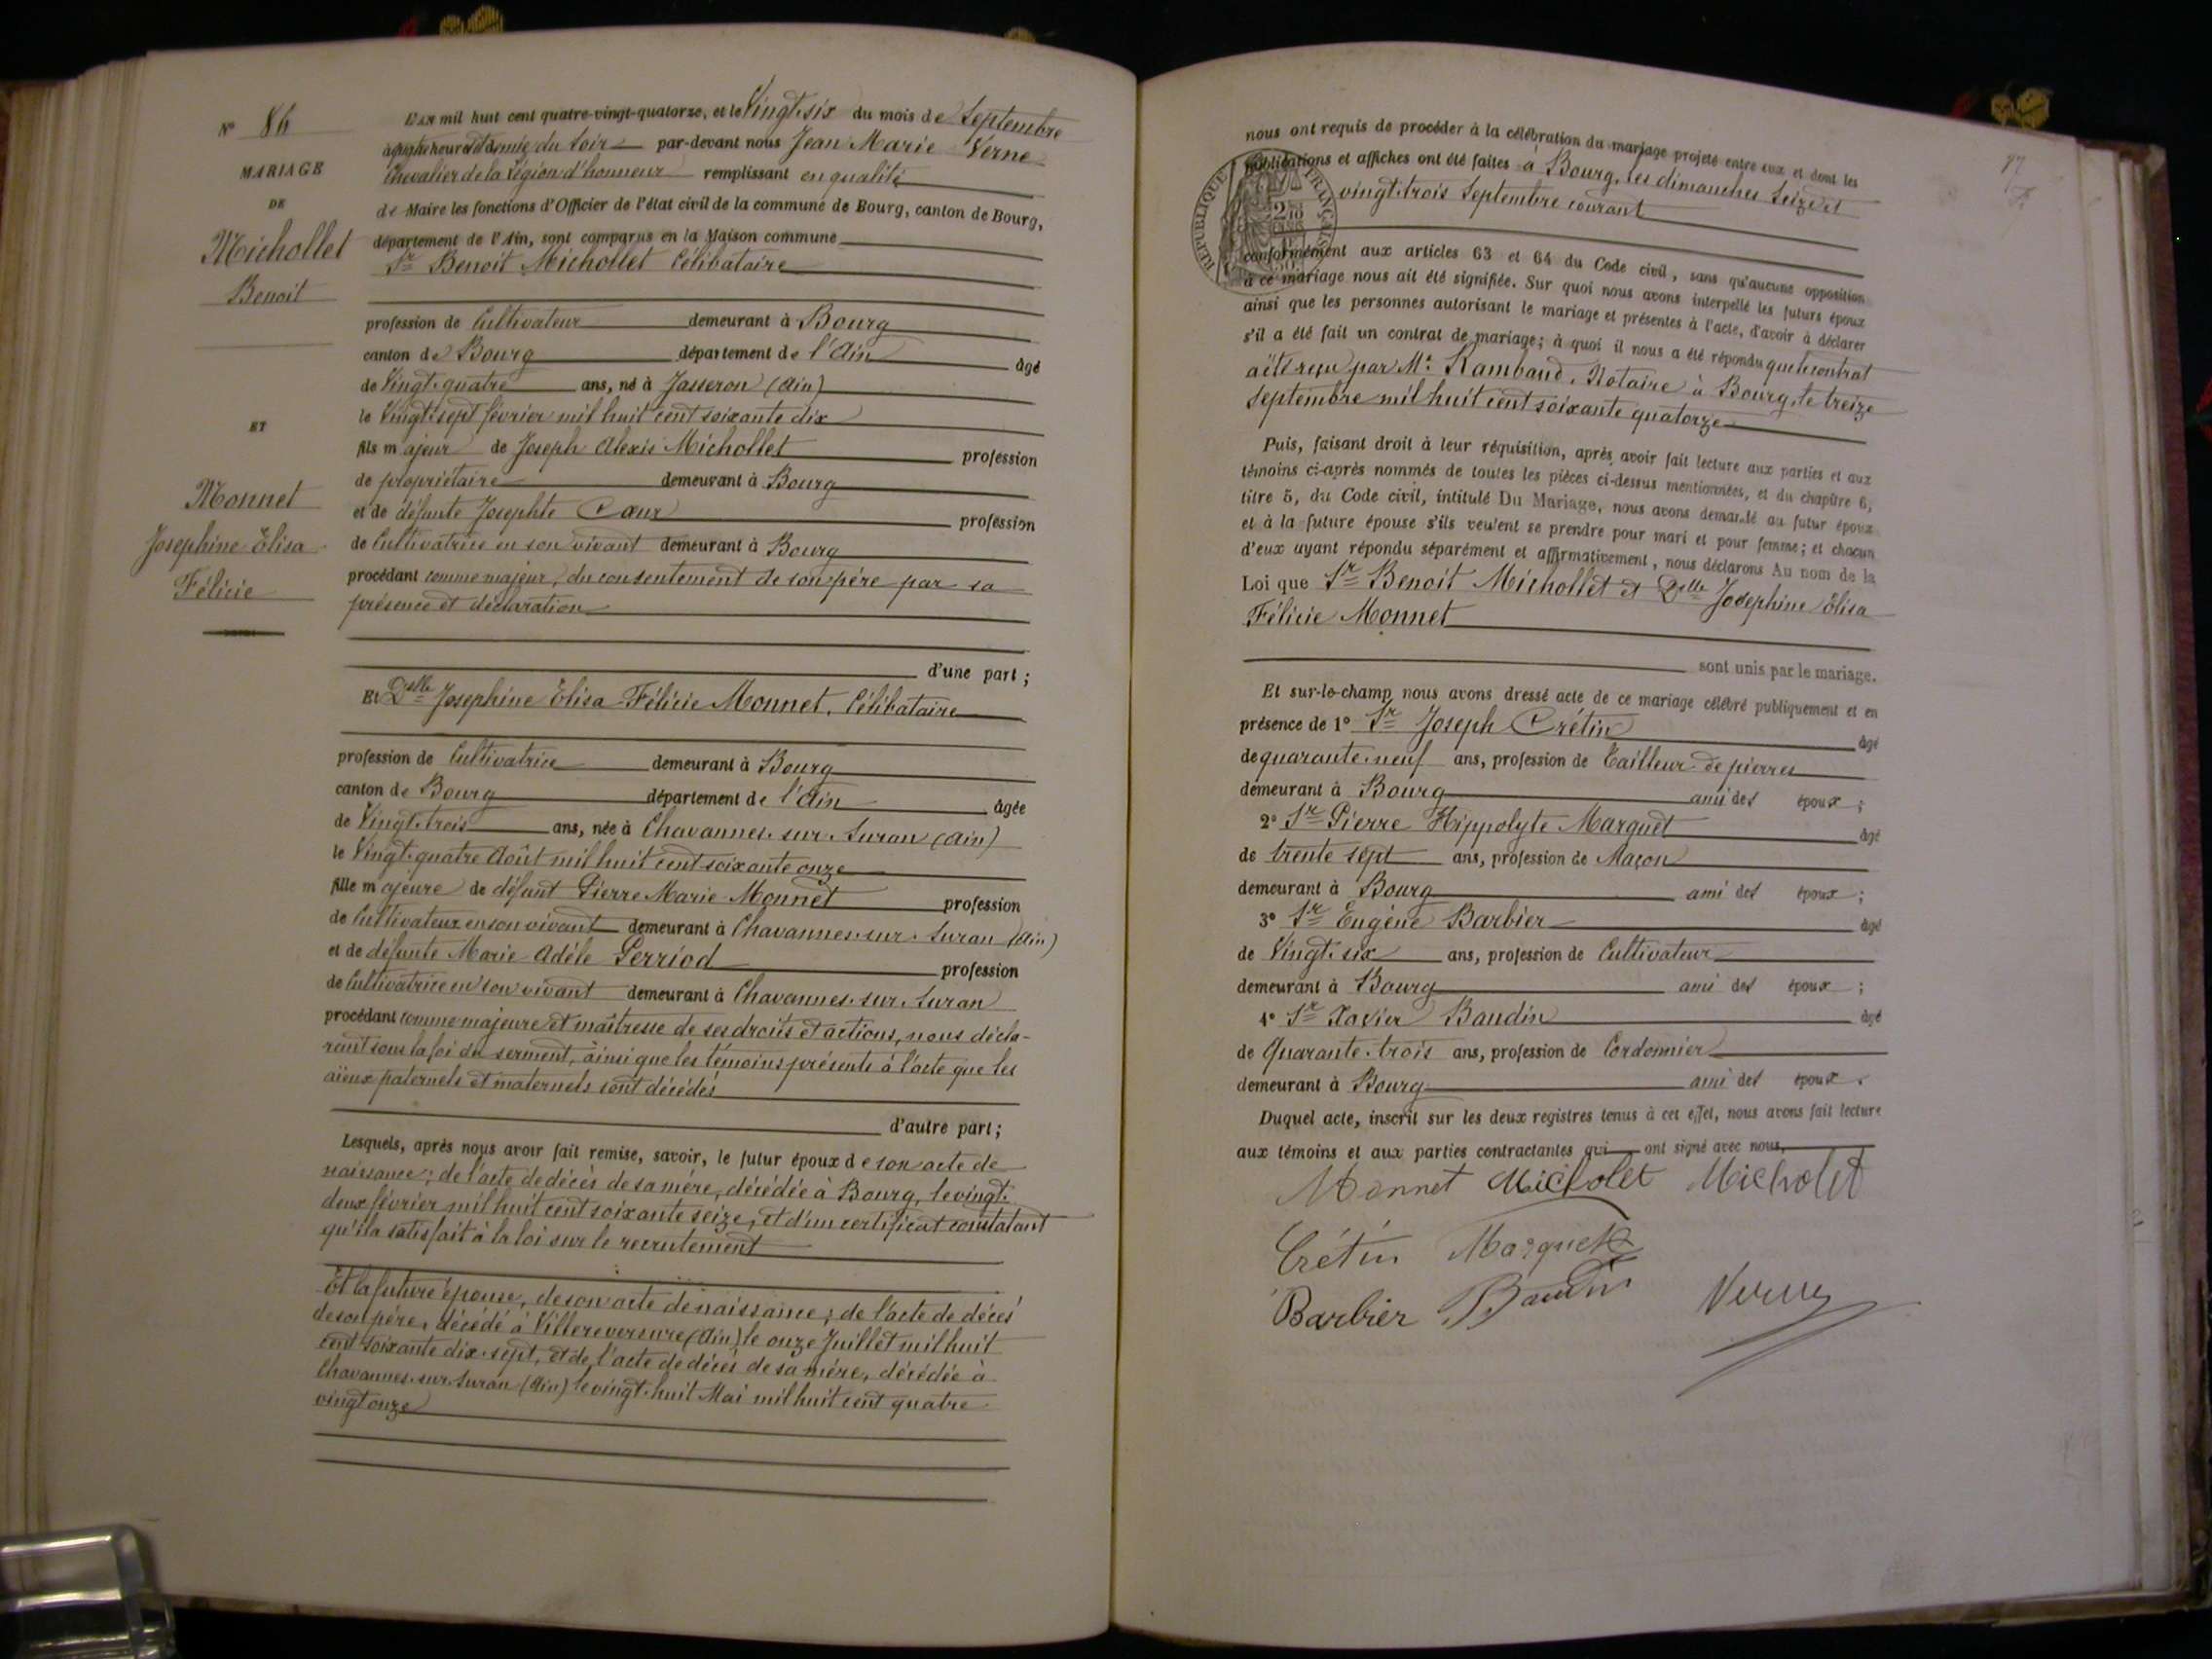 N° 86
MARIAGE
DE
Michollet
Benoit
ET
Monnet
Josephine Elisa
Félicie
L'AN mil huit cent quatre-vingt-quatorze, et le Vingt-six du mois de Septembre
heures et demie du soir par-devant nous Jean Marie Verne
Chevalier de la Légion d'honneur remplissant en qualité
de Maire les fonctions d'Officier de l'état civil de la commune de Bourg, canton de Bourg,
département de l'Ain, sont comparus en la Maison commune
Sr Benoit Michollet Célibataire
profession de Cultivateur demeurant à Bourg
canton de Bourg département de l'Ain âgé
de Vingt-quatre ans, né à Jasseron (Ain)
le Vingt-sept février mil huit cent soixante dix
fils majeur de Joseph Alexis Michollet profession
de propriétaire demeurant à Bourg
et de défunte Josephte Cœur profession
de Cultivatrice en son vivant demeurant à Bourg
procédant comme majeur, du consentement de son père par sa
présence et déclaration
d'une part ;
Et Delle Josephine Elisa Félicie Monnet, Célibataire
profession de Cultivatrice demeurant à Bourg
canton de Bourg département de l'Ain âgée
de Vingt-trois ans, née à Chavannes-sur-Suran (Ain)
le Vingt-quatre Août mil huit cent soixante onze
fille majeure de défunt Pierre Marie Monnet profession
de Cultivateur en son vivant demeurant à Chavannes-sur-Suran (Ain)
et de défunte Marie Adèle Perriod profession
de Cultivatrice en son vivant demeurant à Chavannes-sur-Suran
procédant comme majeure et maîtresse de ses droits et actions, nous décla-
rant sous la foi du serment, ainsi que les témoins présents à l'acte que les
aïeux paternels et maternels sont décédés
d'autre part ;
Lesquels, après nous avoir fait remise, savoir, le futur époux de son acte de
naissance ; de l'acte de décès de sa mère, décédée à Bourg, le vingt-
deux février mil huit cent soixante seize, et d'un certificat constatant
qu'il a satisfait à la loi sur le recrutement
Et la future épouse, de son acte de naissance ; de l'acte de décès
de son père, décédé à Villereversure (Ain) le onze Juillet mil huit
cent soixante dix-sept, et de l'acte de décès de sa mère, décédée à
Chavannes-sur-Suran (Ain) le vingt-huit Mai mil huit cent quatre
vingt onze
87
REPUBLIQUE FRANÇAISE
nous ont requis de procéder à la célébration du mariage projeté entre eux et dont les
publications et affiches ont été faites à Bourg, les dimanches Seize et
vingt-trois Septembre courant
conformément aux articles 63 et 64 du Code civil, sans qu'aucune opposition
à ce mariage nous ait été signifiée. Sur quoi nous avons interpellé les futurs époux
ainsi que les personnes autorisant le mariage et présentes à l'acte, d'avoir à déclarer
s'il a été fait un contrat de mariage ; à quoi il nous a été répondu que le contrat
a été reçu par Me Rambaud, Notaire à Bourg, le treize
septembre mil huit cent soixante quatorze
Puis, faisant droit à leur réquisition, après avoir fait lecture aux parties et aux
témoins ci-après nommés de toutes les pièces ci-dessus mentionnées, et du chapitre 6,
titre 5, du Code civil, intitulé Du Mariage, nous avons demandé au futur époux
et à la future épouse s'ils veulent se prendre pour mari et pour femme ; et chacun
d'eux ayant répondu séparément et affirmativement, nous déclarons Au nom de la
Loi que Sr Benoit Michollet et Delle Josephine Elisa
Félicie Monnet
sont unis par le mariage.
Et sur-le-champ nous avons dressé acte de ce mariage célébré publiquement et en
présence de 1° Sr Joseph Crétin âgé
de quarante-neuf ans, profession de Tailleur de pierres
demeurant à Bourg ami des époux ;
2° Sr Pierre Hippolyte Marquet âgé
de trente sept ans, profession de Maçon
demeurant à Bourg ami des époux ;
3° Sr Eugène Barbier âgé
de Vingt-six ans, profession de Cultivateur
demeurant à Bourg ami des époux ;
4° Sr Xavier Baudin âgé
de Quarante-trois ans, profession de Cordonnier
demeurant à Bourg ami des époux.
Duquel acte, inscrit sur les deux registres tenus à cet effet, nous avons fait lecture
aux témoins et aux parties contractantes qui ont signé avec nous.
Monnet Micholet Micholet
Crétin Marquet
Barbier Baudin Verne